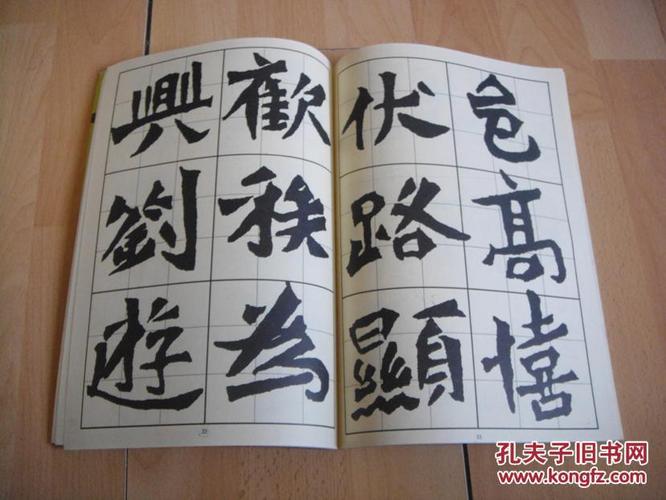 高憘
伏路顯
歡 為
興劉遊
孔夫子旧书网
www.kongfz.com